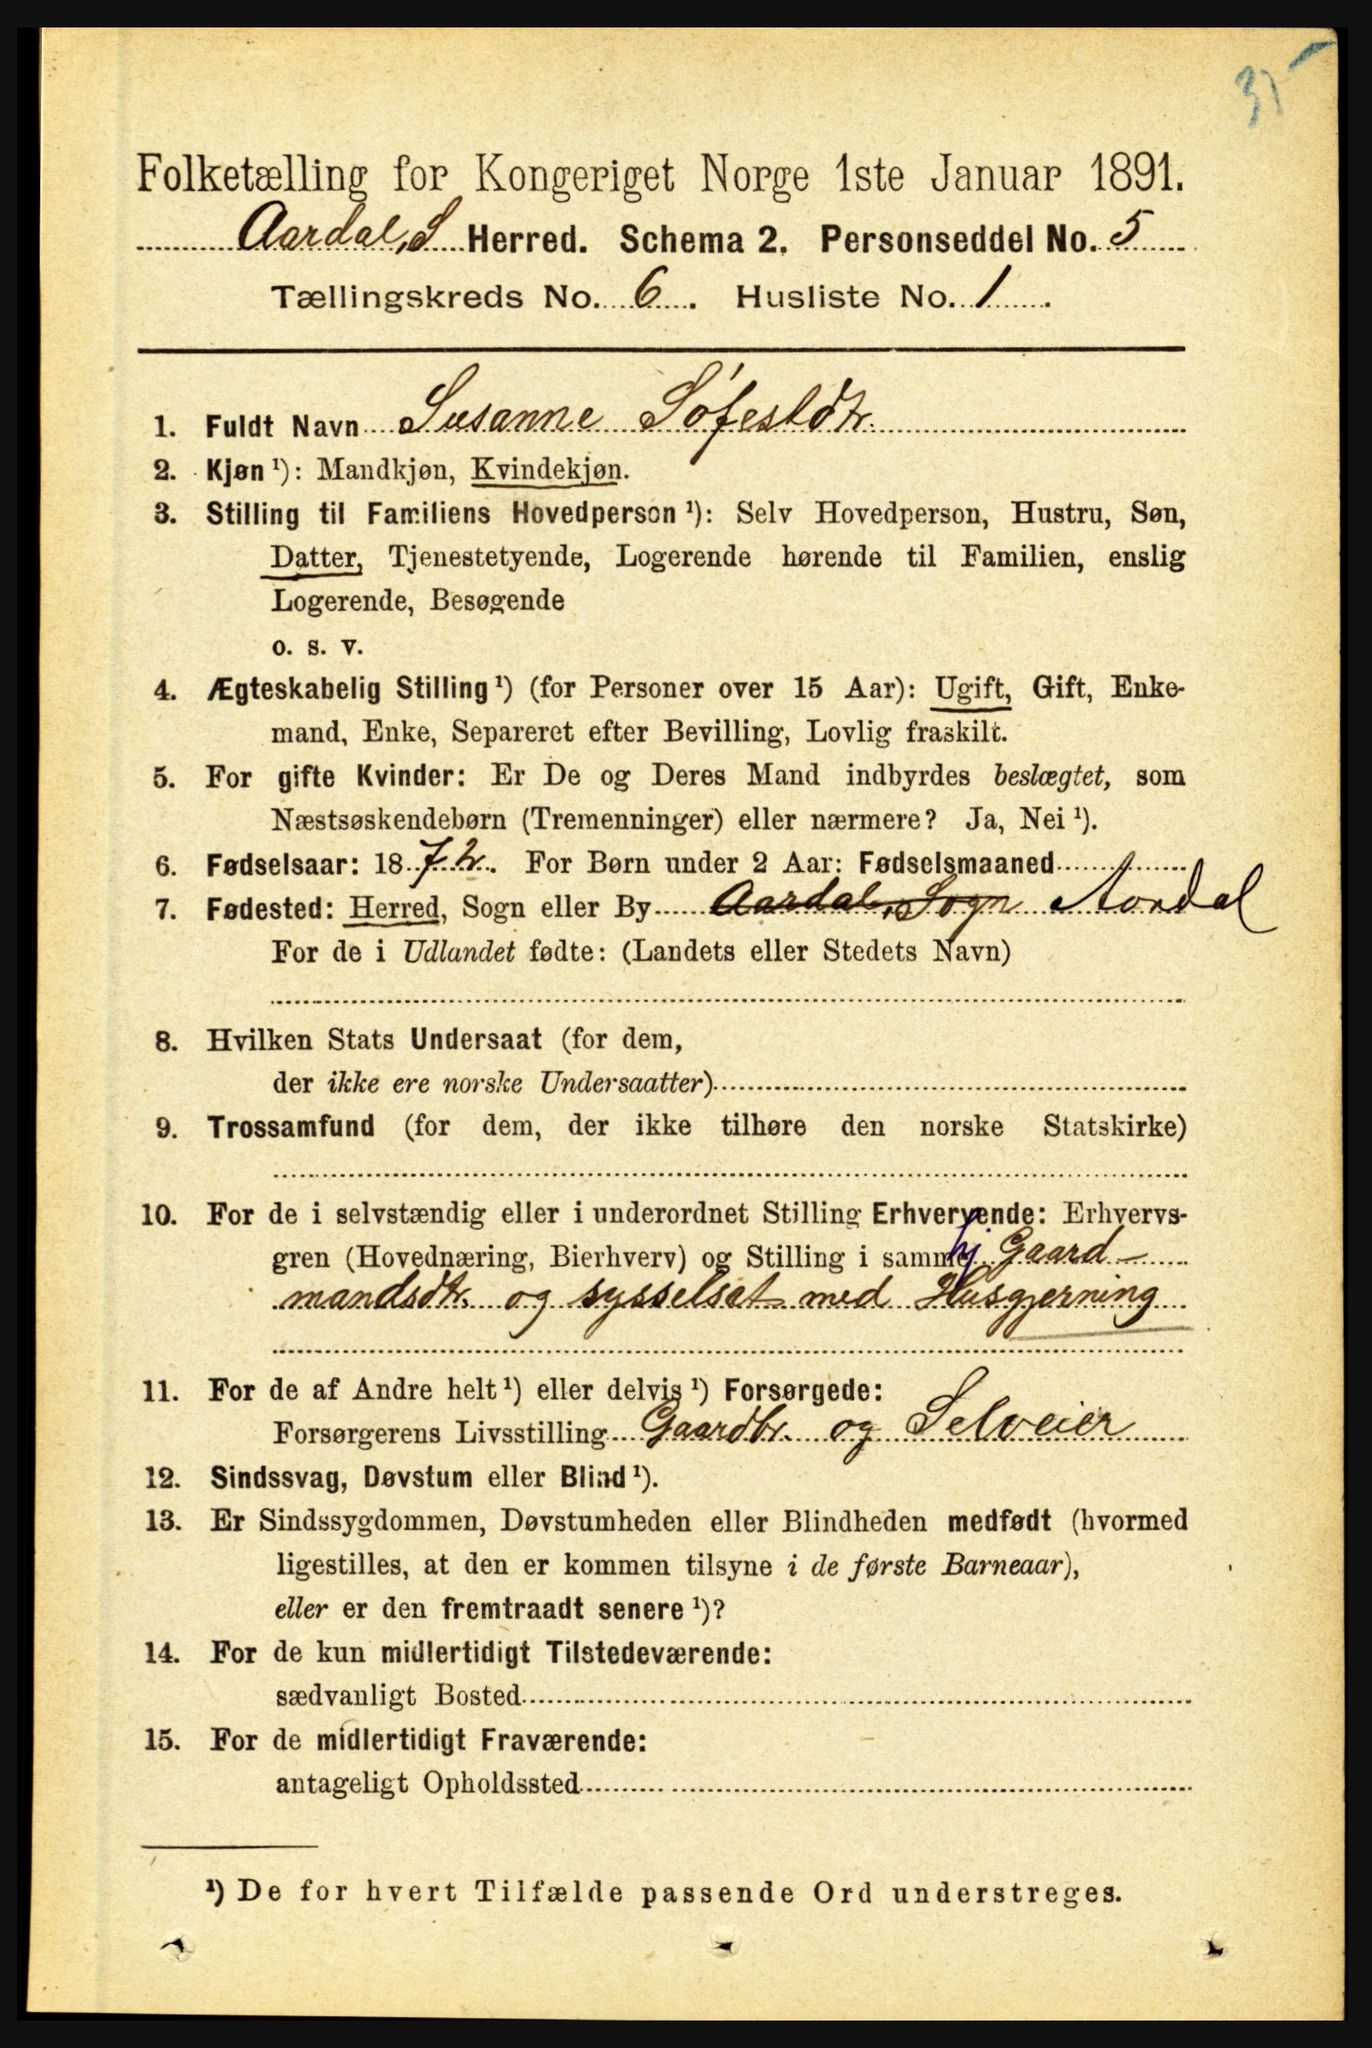 35
Folketælling for Kongeriget Norge 1ste Januar 1891.
Aardal, S Herred. Schema 2. Personseddel No. 5
Tællingskreds No. 6. Husliste No. 1.
1. Fuldt Navn Susanne Sófestdtr.
2. Kjøn ¹): Mandkjøn, Kvindekjøn.
3. Stilling til Familiens Hovedperson ¹): Selv Hovedperson, Hustru, Søn,
Datter, Tjenestetyende, Logerende hørende til Familien, enslig
Logerende, Besøgende
o. s. v.
4. Ægteskabelig Stilling ¹) (for Personer over 15 Aar): Ugift, Gift, Enke-
mand, Enke, Separeret efter Bevilling, Lovlig fraskilt.
5. For gifte Kvinder: Er De og Deres Mand indbyrdes beslægtet, som
Næstsøskendebørn (Tremenninger) eller nærmere? Ja, Nei ¹).
6. Fødselsaar: 1872. For Børn under 2 Aar: Fødselsmaaned
7. Fødested: Herred, Sogn eller By Aardal, Sogn Aardal
For de i Udlandet fødte: (Landets eller Stedets Navn)
8. Hvilken Stats Undersaat (for dem,
der ikke ere norske Undersaatter)
9. Trossamfund (for dem, der ikke tilhøre den norske Statskirke)
10. For de i selvstændig eller i underordnet Stilling Erhvervende: Erhvervs-
gren (Hovednæring, Bierhverv) og Stilling i samme hj Gaard-
mandsdtr. og sysselsat med Husgjerning
11. For de af Andre helt ¹) eller delvis ¹) Forsørgede:
Forsørgerens Livsstilling Gaardbr. og Selveier
12. Sindssvag, Døvstum eller Blind ¹).
13. Er Sindssygdommen, Døvstumheden eller Blindheden medfødt (hvormed
ligestilles, at den er kommen tilsyne i de første Barneaar),
eller er den fremtraadt senere ¹)?
14. For de kun midlertidigt Tilstedeværende:
sædvanligt Bosted
15. For de midlertidigt Fraværende:
antageligt Opholdssted
¹) De for hvert Tilfælde passende Ord understreges.